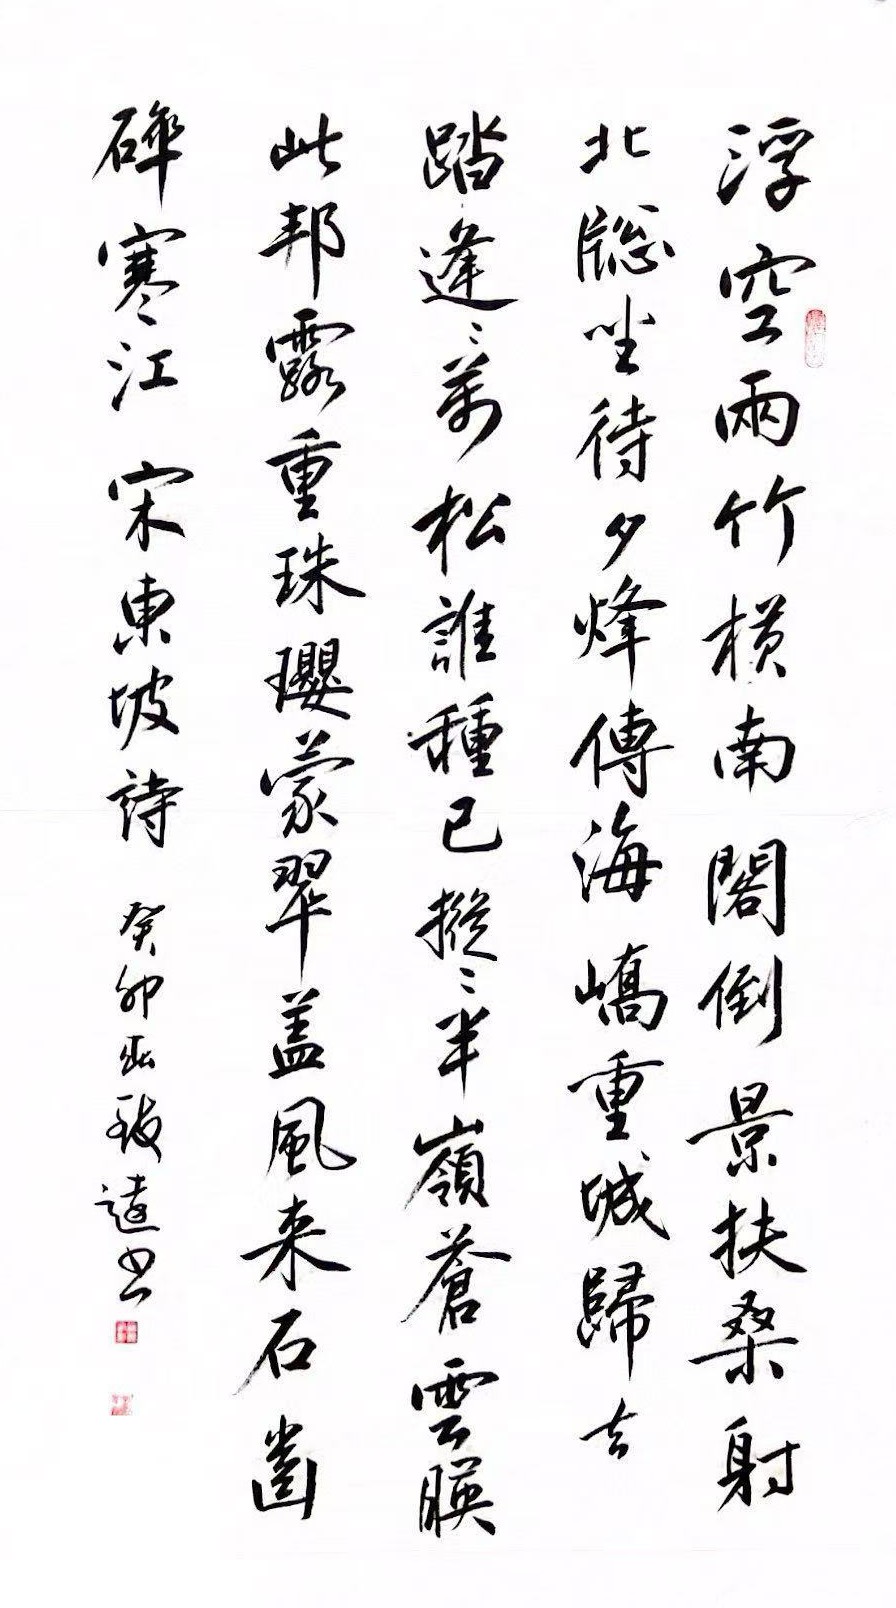 浮空兩竹橫南閣倒景扶桑射
北牕坐待夕烽傳海嶠重城歸去
踏逢〻萬松誰種已摐〻半嶺蒼雲暎
此邦露重珠瓔蒙翠盖風来石齒
碎寒江 宋東坡詩 癸卯 书